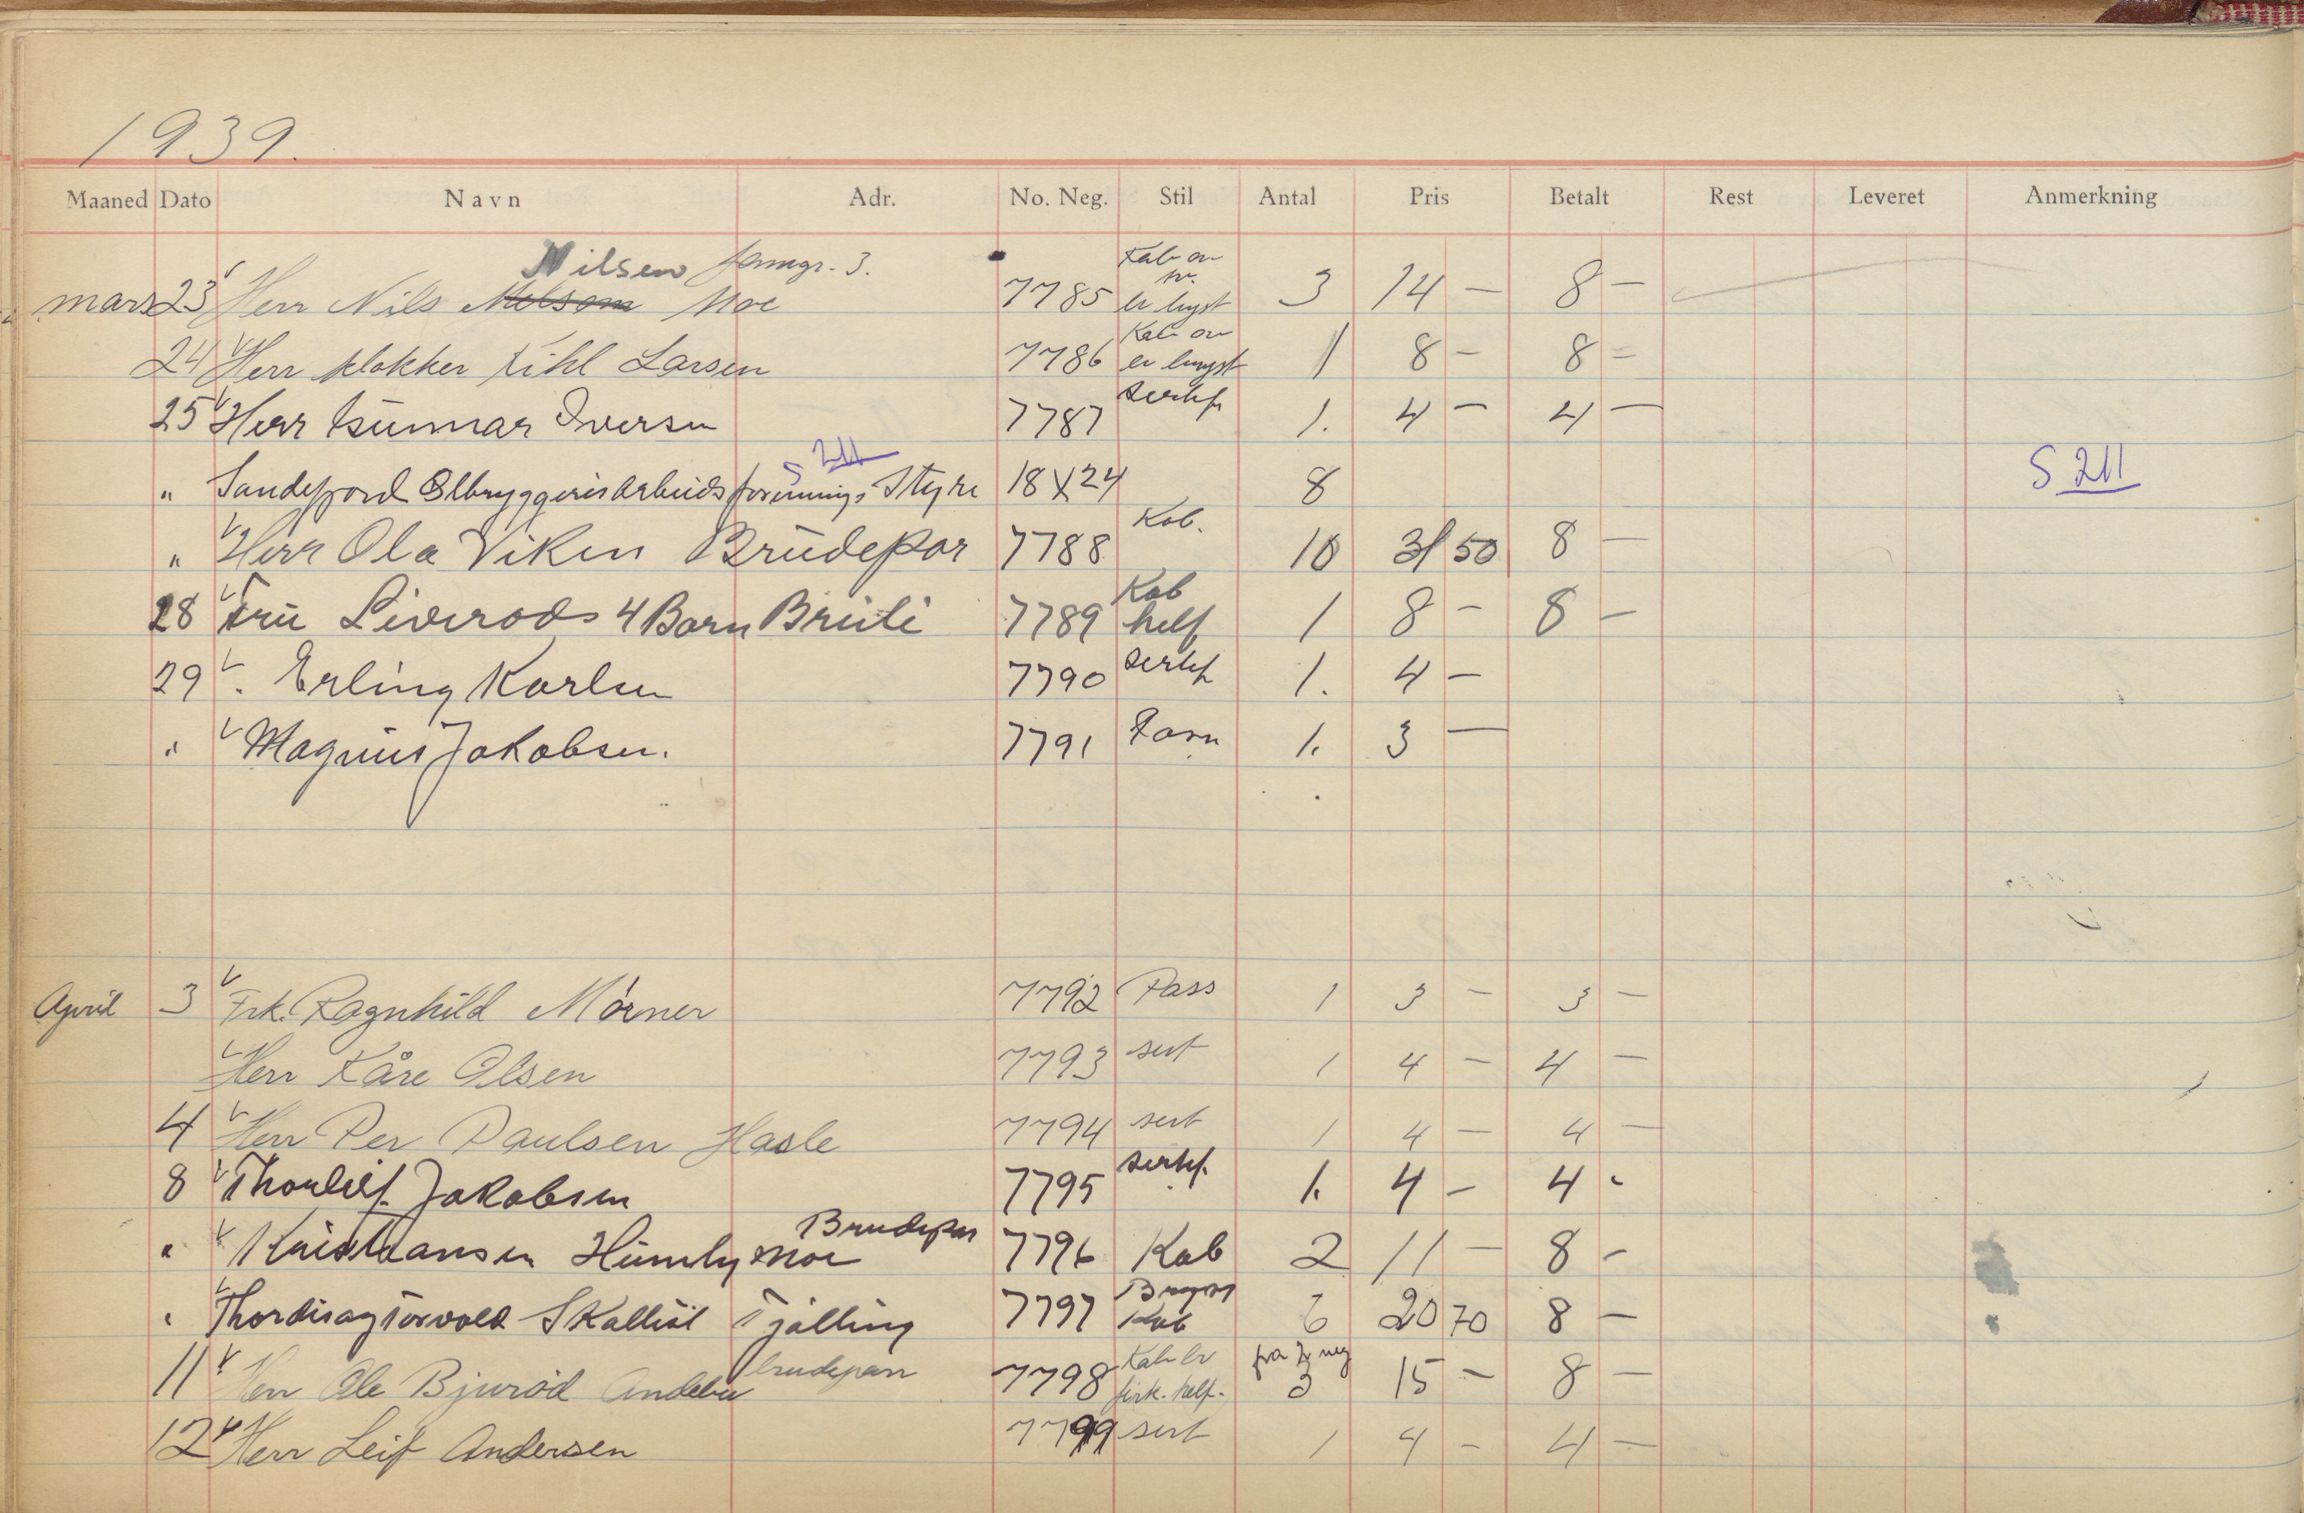 1939.
Maaned Dato Navn Adr. No. Neg. Stil Antal Pris Betalt Rest Leveret Anmerkning
Nilsen famgr. 3. Kab
mars 23 Herr Nils Nilsom Moe 7785 er lyst 3 14 — 8 —
Kab
24 Herr klokker Kihl Larsen 7786 er 1 8 — 8 —
25 Herr Gunnar Iversen 7787 sertif 1. 4 — 4 —
S 211
" Sandefjord Ølbryggeris Arbeidsforenings Styre 18X24 8 S 211
" Herr Ola Viken Brudepar 7788 Kab. 10 31 50 8 —
Kab
28 Fru Liverøds 4 Barn 7789 helf 1 8 — 8 —
29 . Erling Karlsen 7790 sertif 1. 4 —
" Magnus Jakobsen. 7791 1. 3 —
April 3 Frk. Ragnhild Mörner 7792 Pass 1 3 — 3 —
Herr Kåre Olsen 7793 sert 1 4 — 4 —
4 Herr Per Paulsen Hasle 7794 sert 1 4 — 4 —
8 Thorleif Jakobsen 7795 sertif. 1. 4 — 4 -
Brudepar
" Kristiansen Moe 7796 Kab 2 11 — 8 -
" Thordis og Torvald Skallist Tjølling 7797 Kab 6 20 70 8 —
brudepar Kab fra 2 neg
11 Herr Ole Bjuröd Andebu 7798 helf. 3 15 — 8 —
12 Herr Leif Andersen 7799 sert 1 4 — 4 —